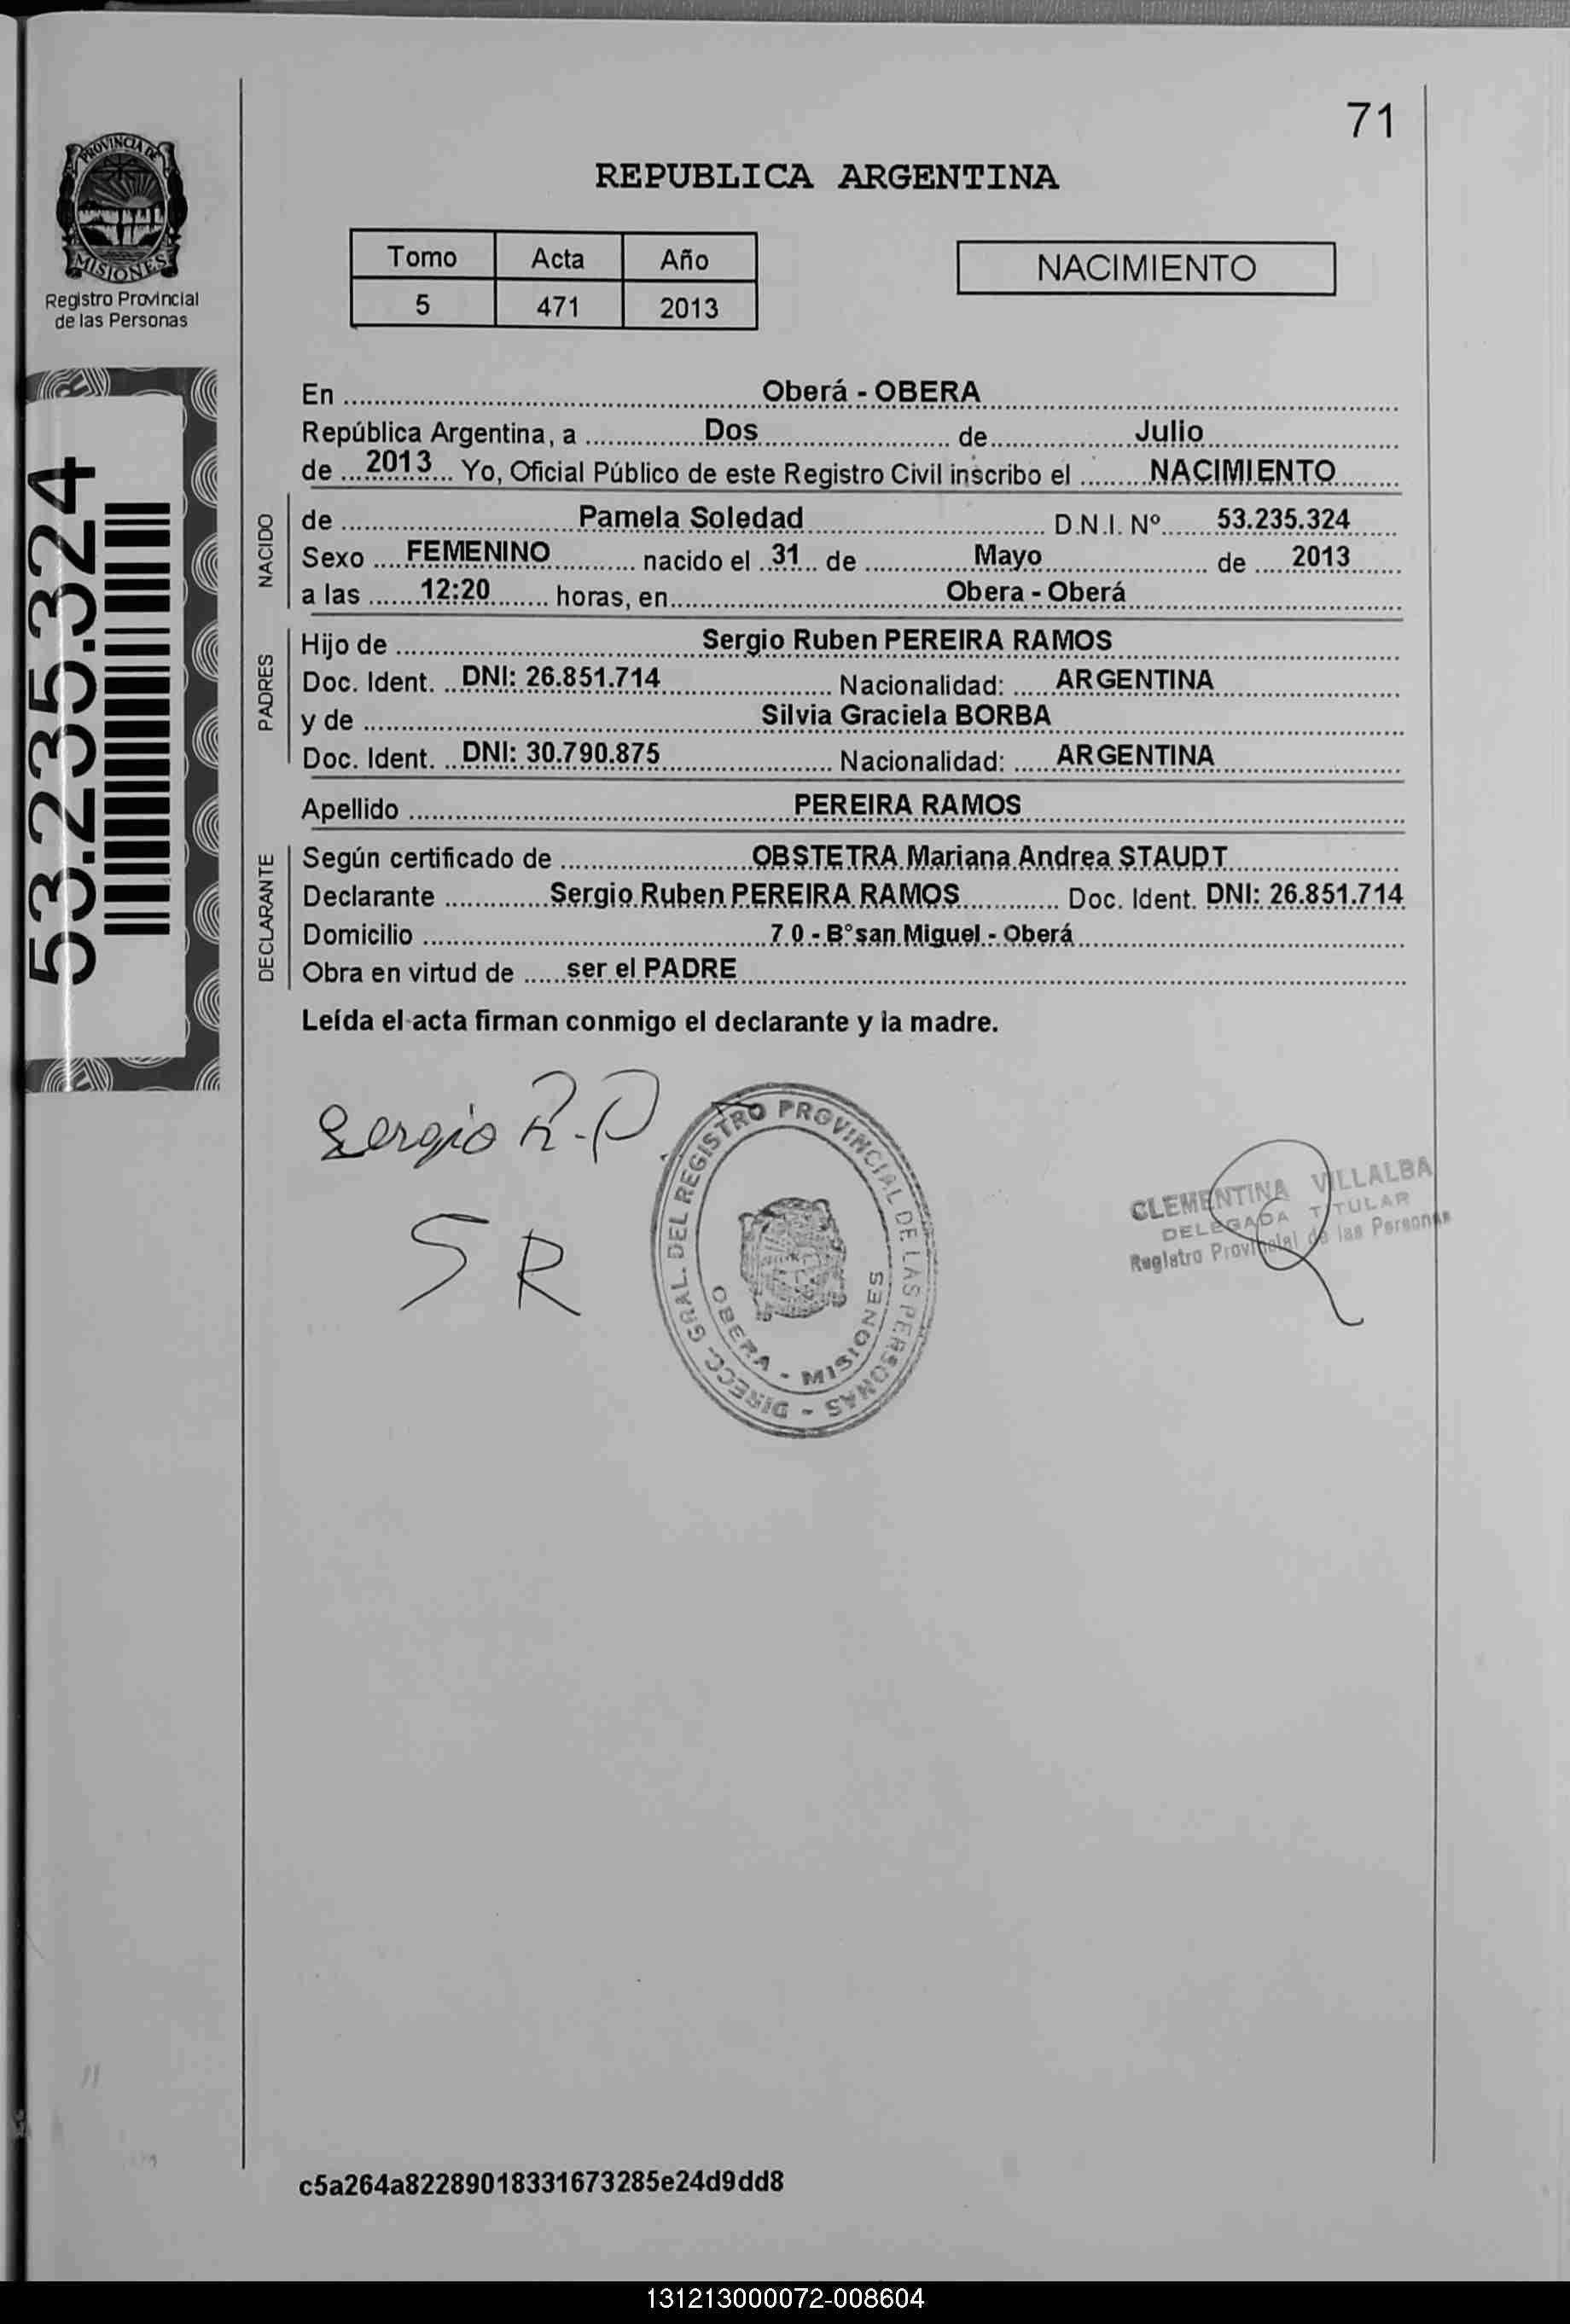 71
PROVINCIA DE
MISIONES
Registro Provincial
de las Personas
REPUBLICA ARGENTINA
Tomo Acta Año
5 471 2013
NACIMIENTO
53.235.324
En Oberá - OBERA
República Argentina, a Dos de Julio
de 2013 Yo, Oficial Público de este Registro Civil inscribo el NACIMIENTO
NACIDO
de Pamela Soledad D.N.I. Nº 53.235.324
Sexo FEMENINO nacido el 31 de Mayo de 2013
a las 12:20 horas, en Obera - Oberá
PADRES
Hijo de Sergio Ruben PEREIRA RAMOS
Doc. Ident. DNI: 26.851.714 Nacionalidad: ARGENTINA
y de Silvia Graciela BORBA
Doc. Ident. DNI: 30.790.875 Nacionalidad: ARGENTINA
Apellido PEREIRA RAMOS
DECLARANTE
Según certificado de OBSTETRA Mariana Andrea STAUDT
Declarante Sergio Ruben PEREIRA RAMOS Doc. Ident. DNI: 26.851.714
Domicilio 7 0 - B° san Miguel - Oberá
Obra en virtud de ser el PADRE
Leída el acta firman conmigo el declarante y la madre.
Sergio R.P.
S R
DIRECC. GRAL. DEL REGISTRO PROVINCIAL DE LAS PERSONAS -
OBERA - MISIONES
CLEMENTINA VILLALBA
DELEGADA TITULAR
Registro Provincial de las Personas
c5a264a82289018331673285e24d9dd8
131213000072-008604